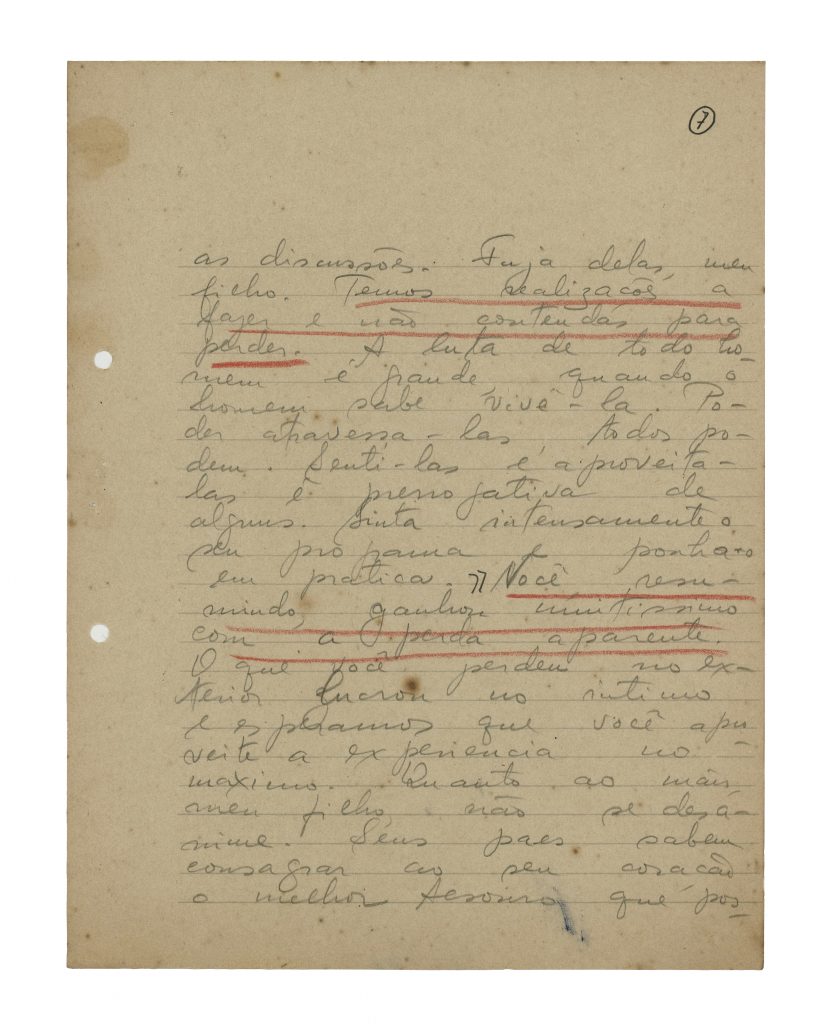 7
as discussões. Fuja delas, meu
filho. Temos realizações a
fazer e não contendas para
perder. A luta de todo ho-
mem é grande quando o
homem sabe vivê-la. Po-
der atravessa-las todos po-
dem. Senti-las e aproveita-
las é prerrogativa de
alguns. Sinta intensamente o
seu programa e ponha-o
em pratica. Você resu-
mindo, ganhou muitissimo
com a perda aparente.
O que você perdeu no ex-
terior lucrou no intimo
e esperamos que você apro-
veite a experiencia no
maximo. Quanto ao mais
meu filho, não se desá-
nime. Seus paes sabem
consagrar ao seu coração
o melhor tesouro que pos-